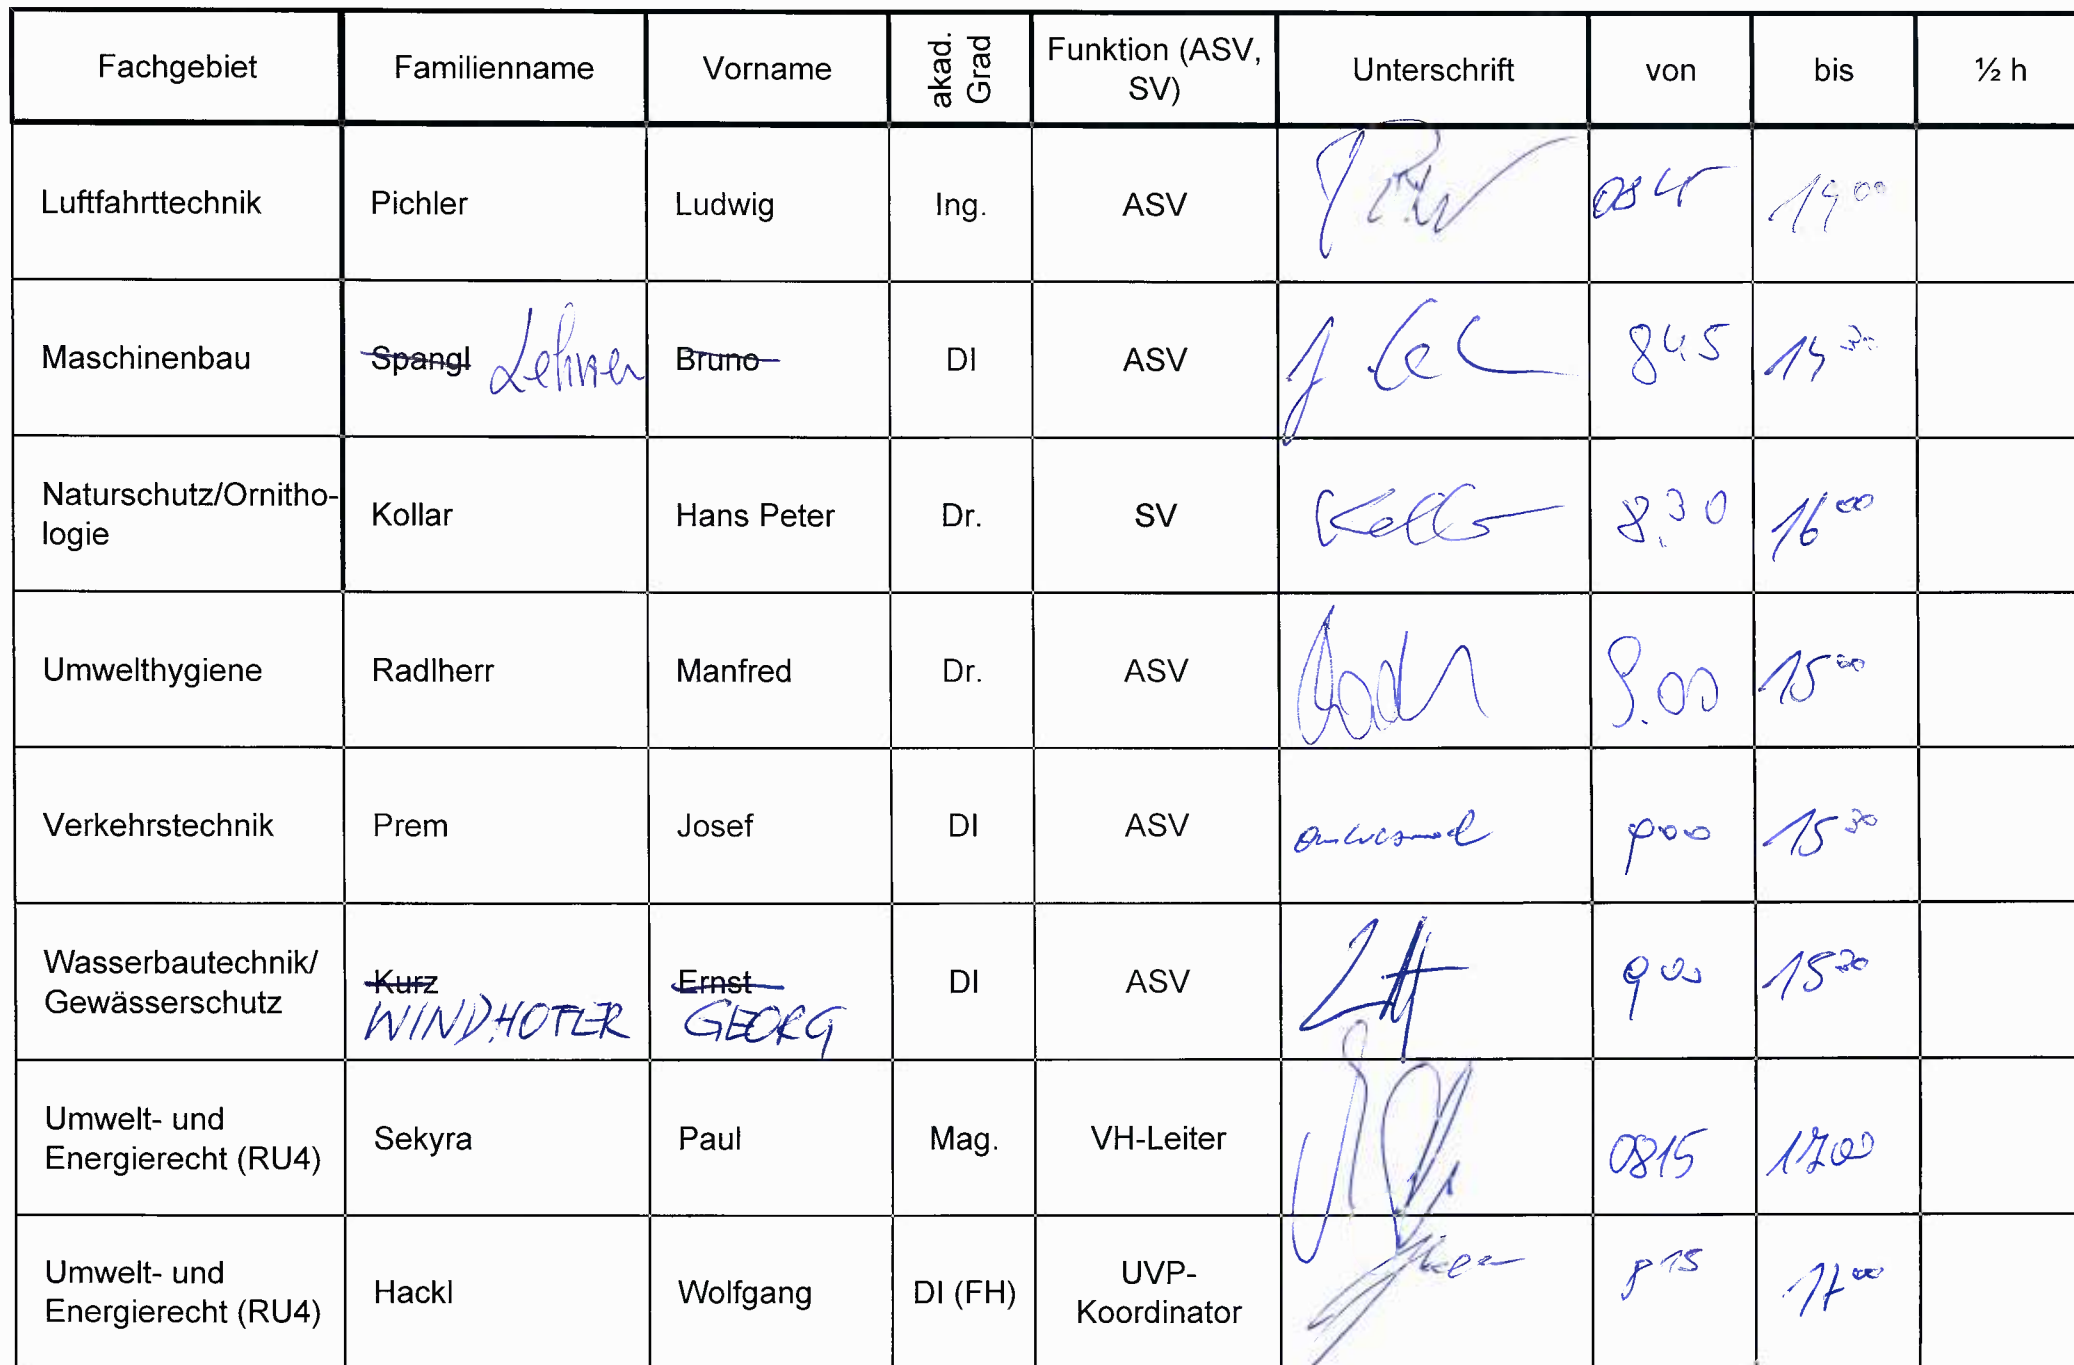 Fachgebiet Familienname Vorname akad. Grad Funktion (ASV, SV) Unterschrift von bis ½ h
Luftfahrttechnik Pichler Ludwig Ing. ASV 0845 14 00
Maschinenbau Spangl Lehner Bruno DI ASV 845 14 30
Naturschutz/Ornitho-
logie Kollar Hans Peter Dr. SV 8.30 16 00
Umwelthygiene Radlherr Manfred Dr. ASV 9.00 15 00
Verkehrstechnik Prem Josef DI ASV anwesend 900 15 30
Wasserbautechnik/
Gewässerschutz Kurz Ernst DI ASV 9 00 15 30
WINDHOFER GEORG
Umwelt- und
Energierecht (RU4) Sekyra Paul Mag. VH-Leiter 0815 1700
Umwelt- und
Energierecht (RU4) Hackl Wolfgang DI (FH) UVP-
Koordinator 8 15 17 00